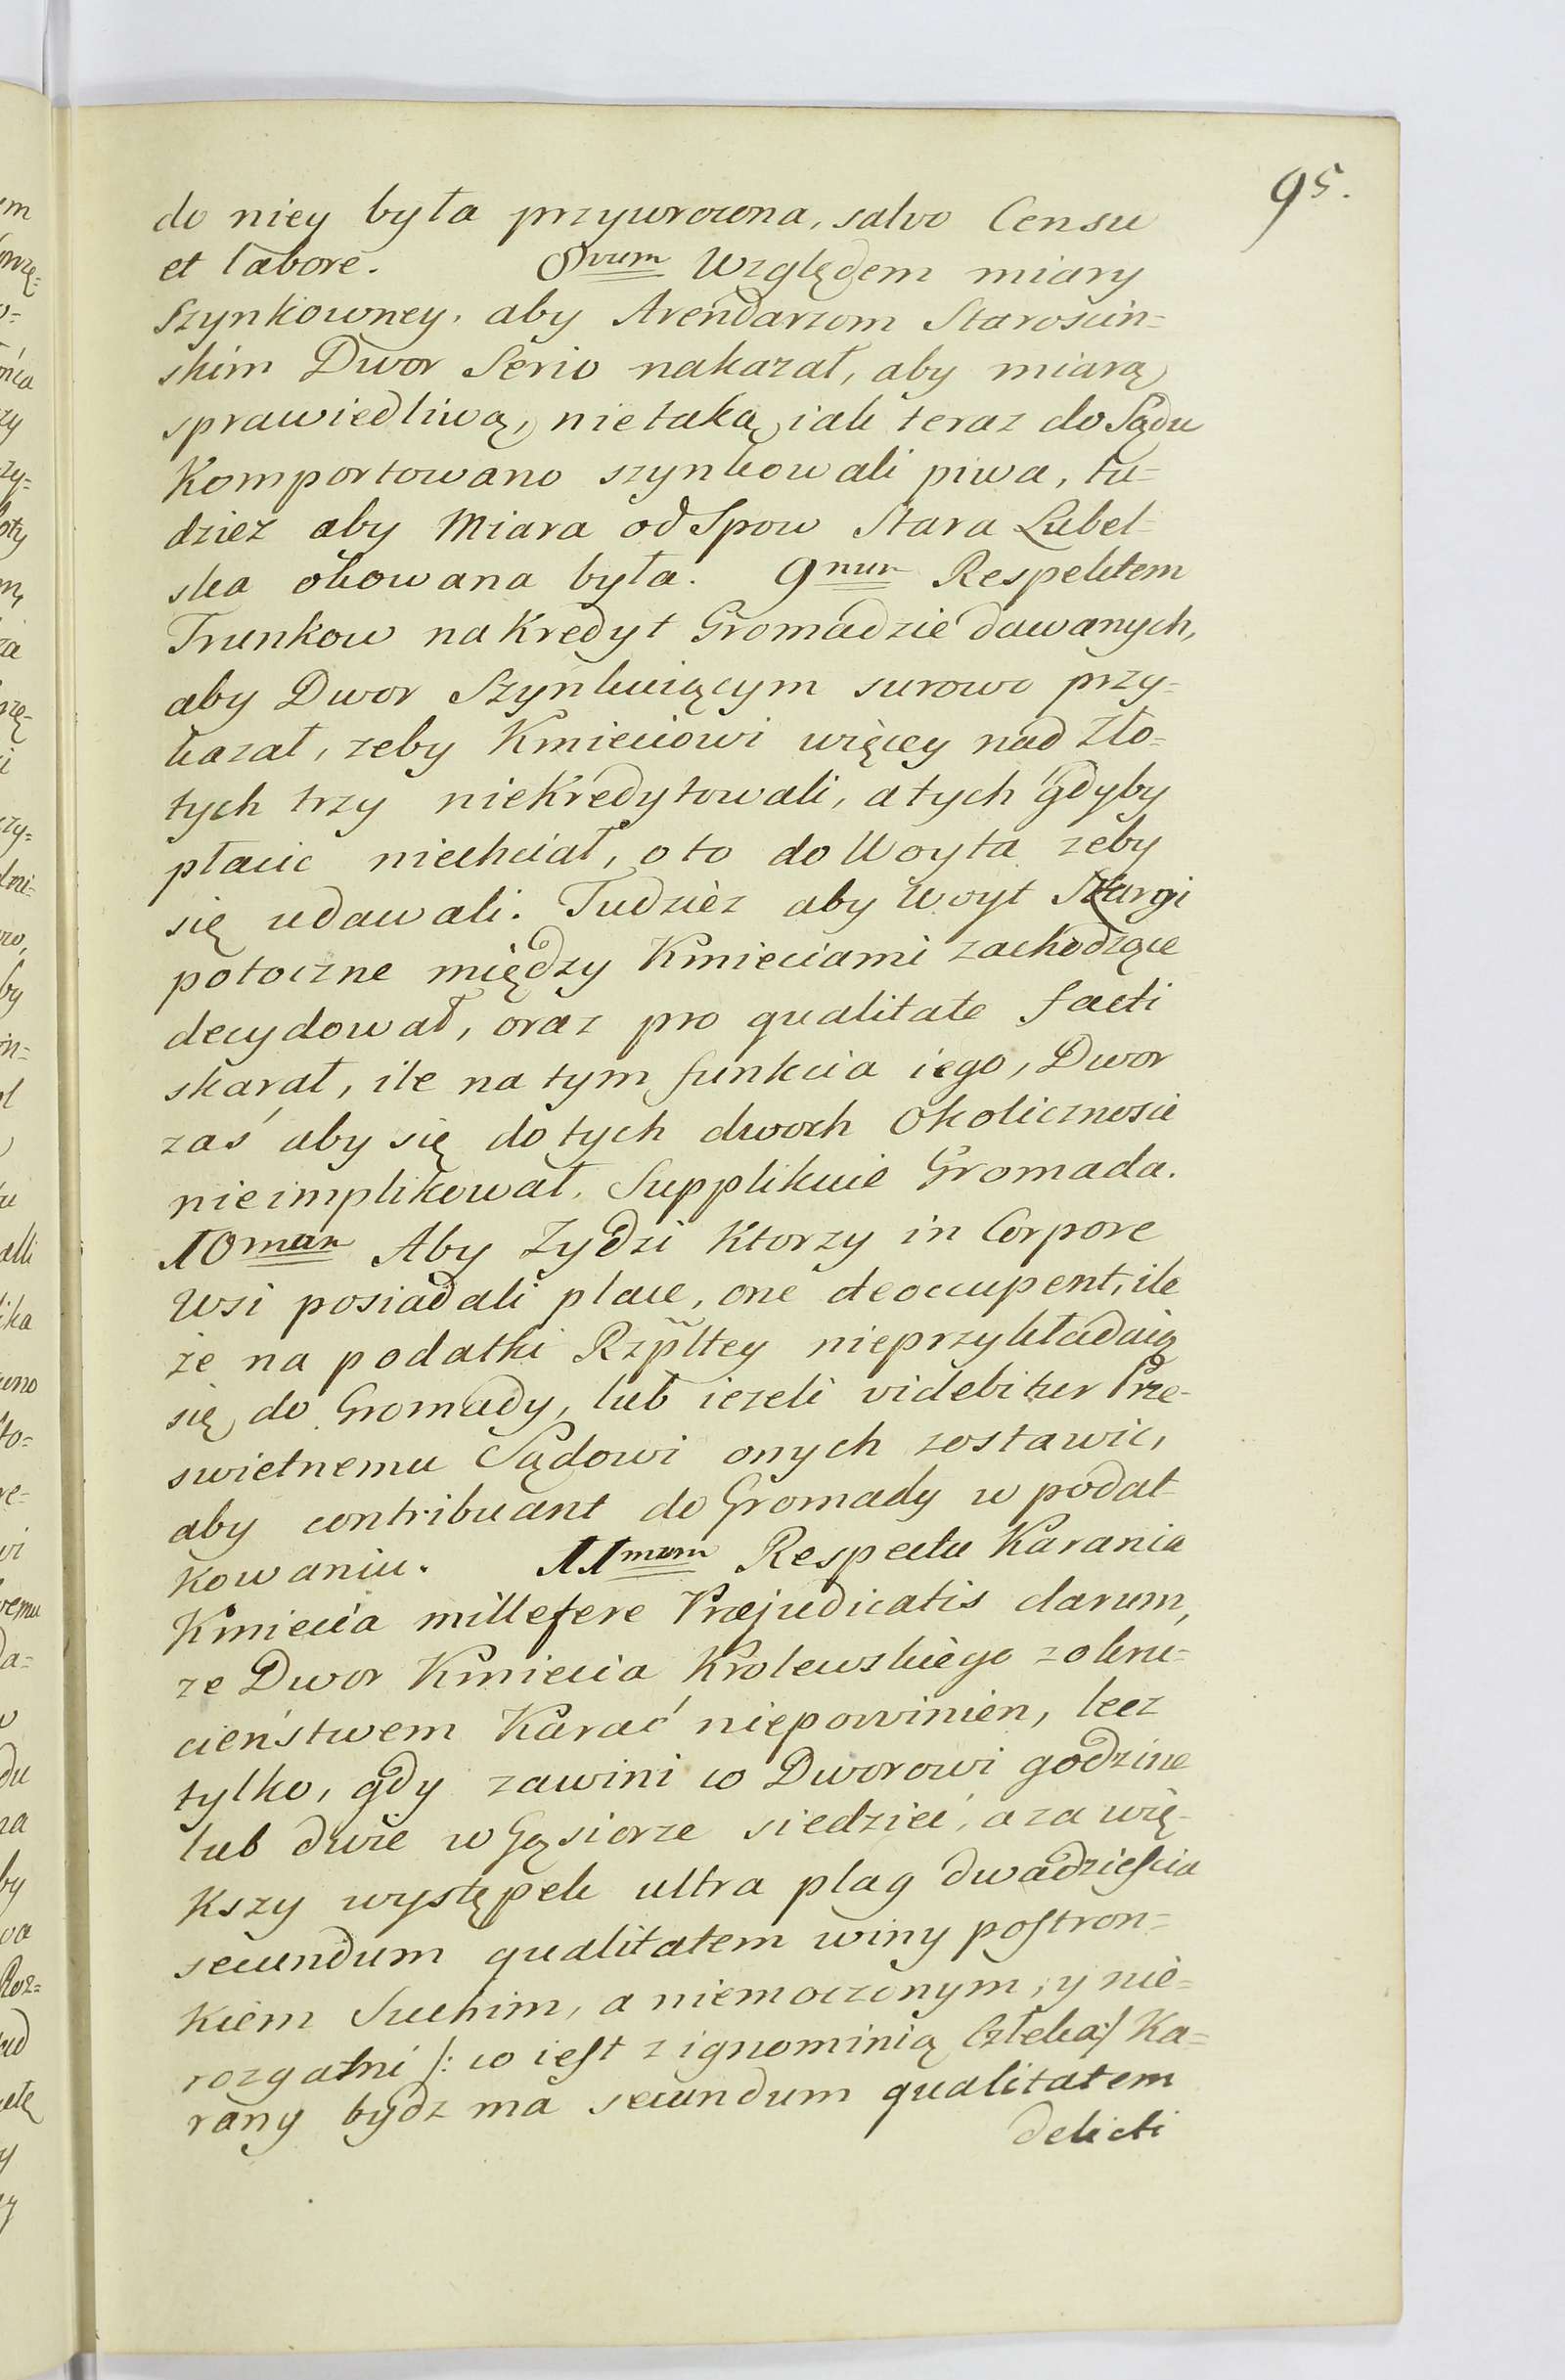 95.
do niey była przywrocona, salvo Censu
et labore. 8vum Względem miary
Szynkowney, aby Arendarzom Staroscin=
skim Dwor Serio nakazał, aby miarą
sprawiedliwą, nietaką iak teraz do Sądu
Komportowano szynkowali piwa, tu=
dziez aby Miara od Spow Stara Lubel=
ska okowana była. 9num Respektem
Trunkow na Kredyt Gromadzie dawanych,
aby Dwor Szynkuiącym surowo przy=
kazał, zeby Kmieciowi więcey nad Zło=
tych trzy niekredytowali, a tych gdyby
płacic niechciał, o to do Woyta zeby
się udawali. Tudziez aby Woyt Skargi
potoczne między Kmieciami zachodzące
decydował, oraz pro qualitate facti
skarał, ile na tym funkcia iego, Dwor
zaś aby się do tych dwoch Okolicznosci
nieimplikował, Supplikuie Gromada.
10mum Aby Zydzi Ktorzy in Corpore
Wsi posiadali place, one deoccupent, ile
że na podatki Rzpltey nieprzykładaią
się do Gromady, lub iezeli videbitur Prze-
swietnemu Sądowi onych zostawic,
aby contribuant do Gromady w podat
kowaniu. 11mum Respectu Karania
Kmiecia millefere Præjudicatis clarum,
ze Dwor Kmiecia Krolewskiego z okru=
cieństwem Karać niepowinien, lecz
tylko, gdy zawini co Dworowi godzine
lub dwie w Gąsiorze siedzieć, a za wię-
kszy występek ultra plag dwadzieścia
secundum qualitatem winy postron=
kiem Suchim, a niemoczonym, y nie=
rozgatni /: co iest z ignominią Człeka:/ Ka=
rany bydz ma secundum qualitatem
delicti